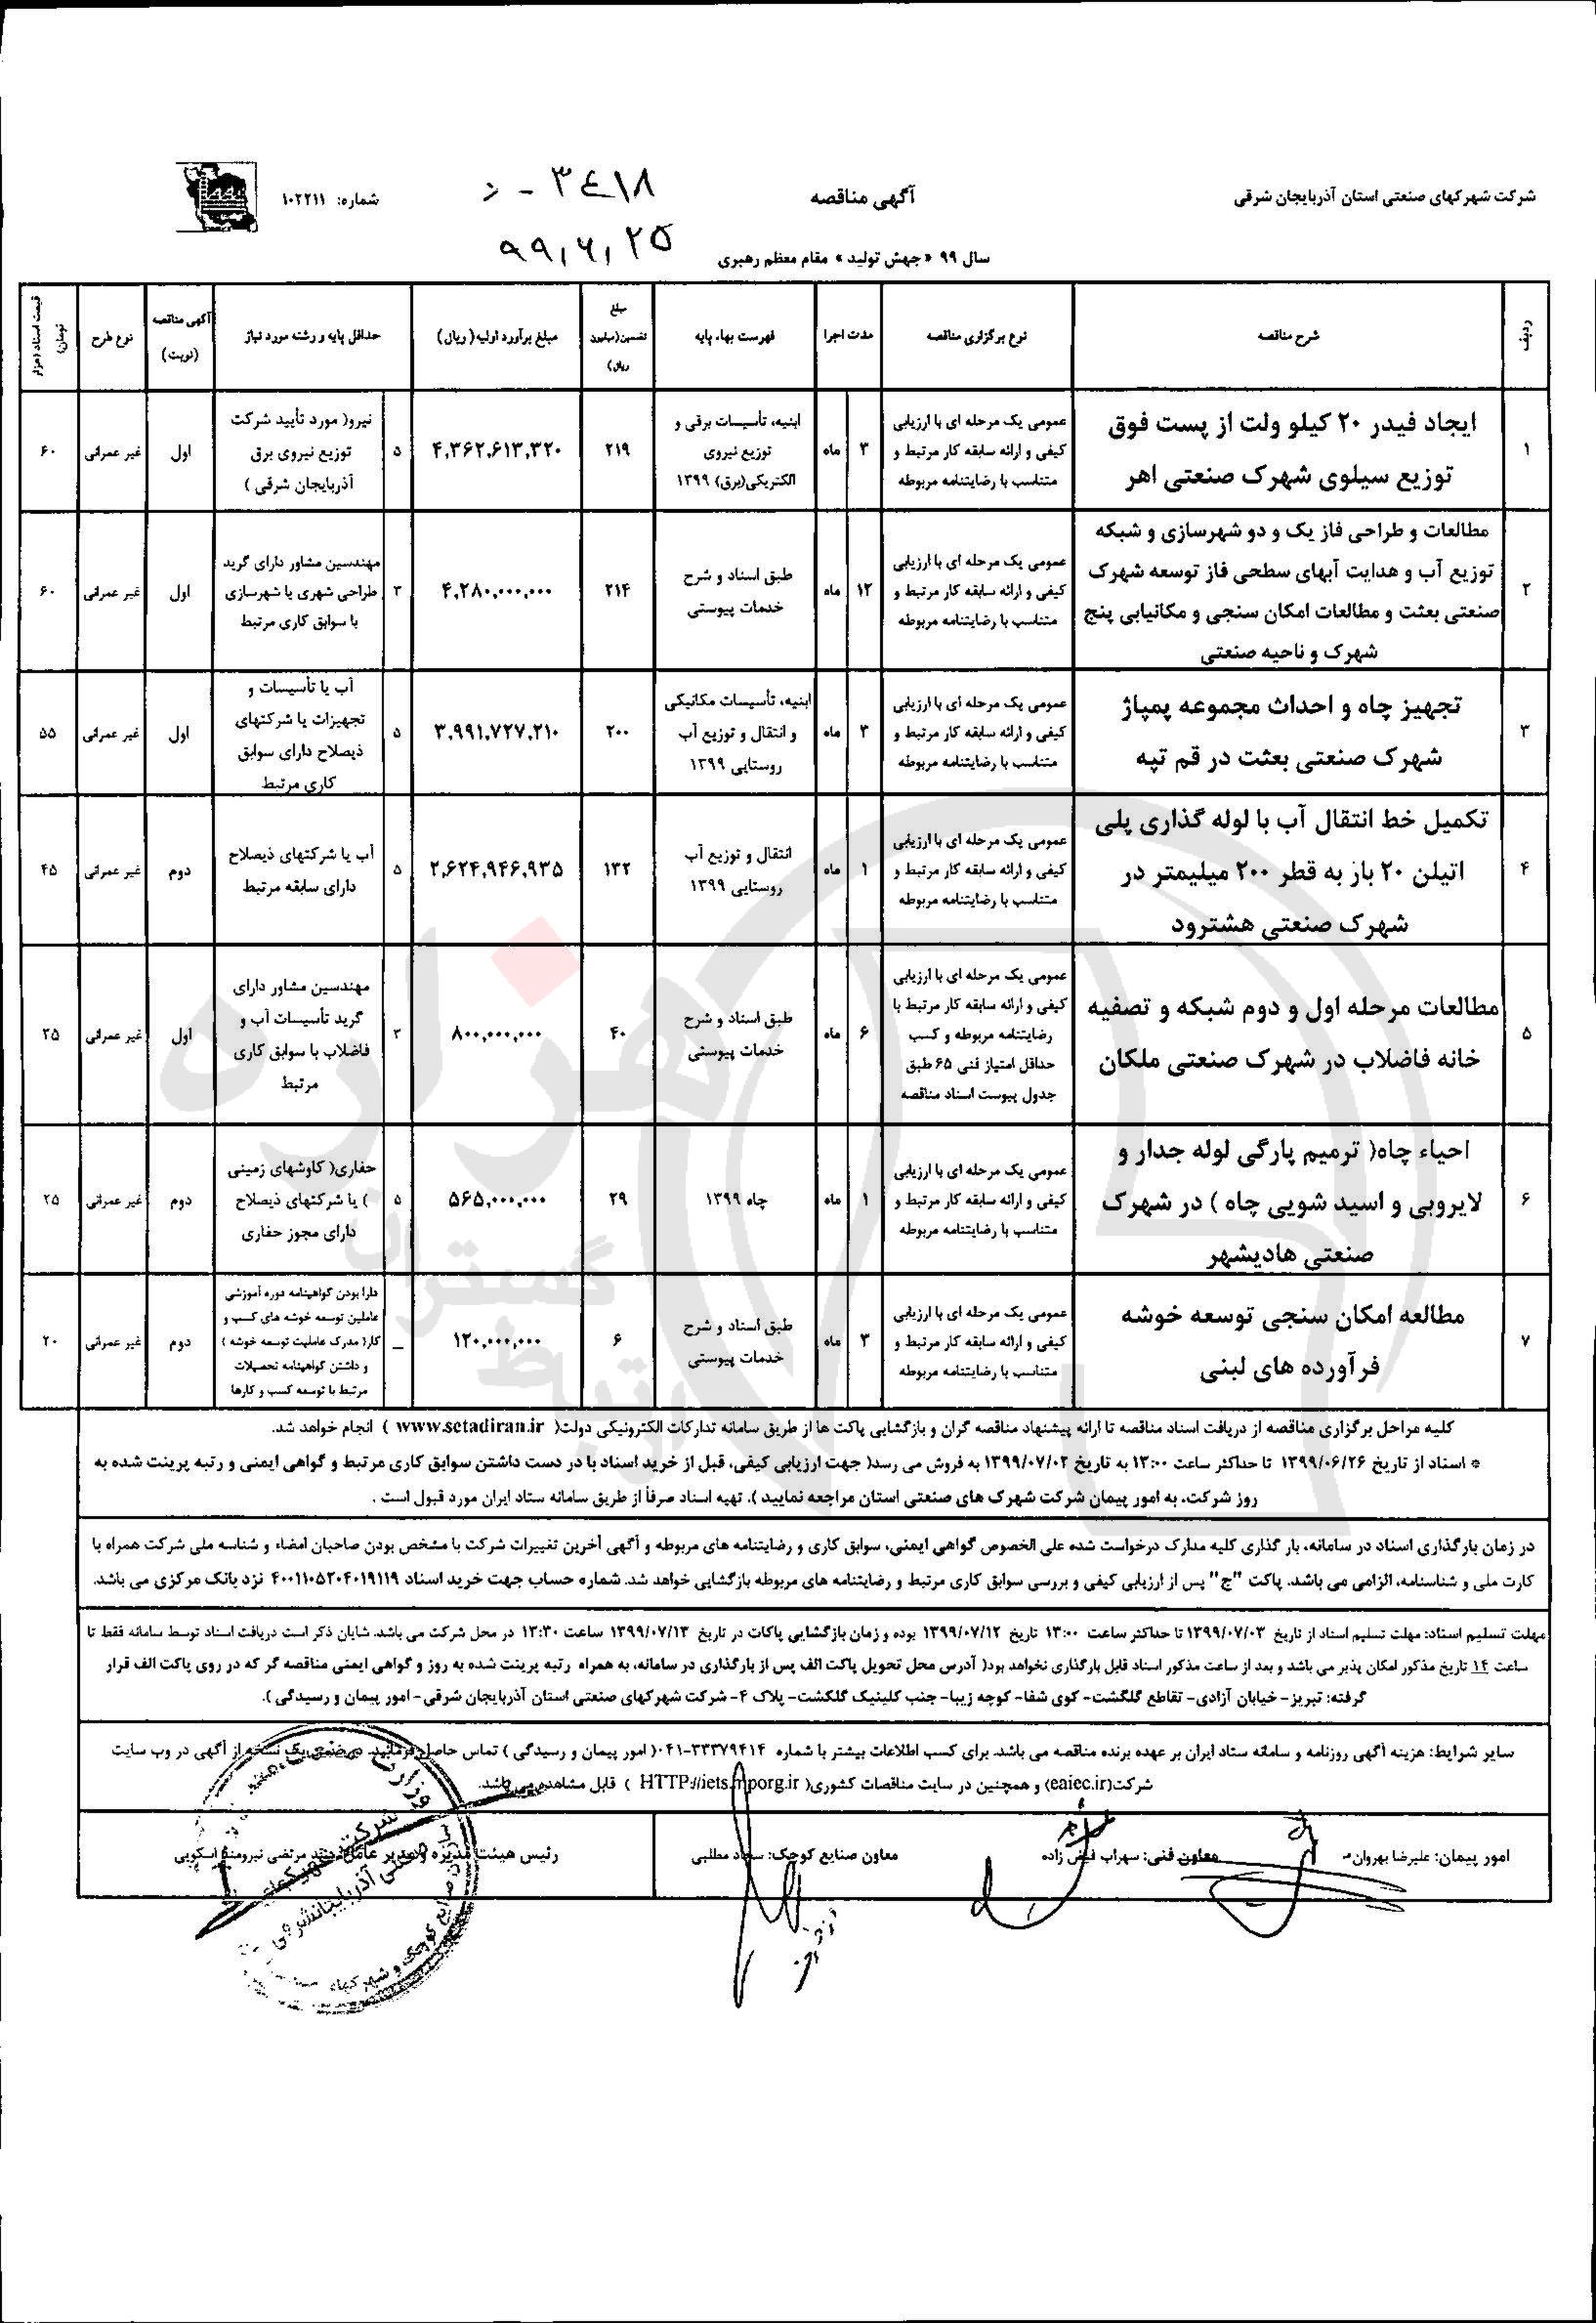 شرکت شهرکهای صنعتی استان آذربایجان شرقی
آگهی مناقصه
۳۴۱۸ -
شماره: ۱۰۲۲۱۱
سال ۹۹ «جهش تولید» مقام معظم رهبری
۹۹,۶,۲۵
ردیف
شرح مناقصه
نوع برگزاری مناقصه
مدت اجرا
فهرست بهاء پایه
مبلغ
تضمین(میلیون
ریال)
مبلغ برآورد اولیه( ریال)
حداقل پایه و رشته مورد نیاز
آگهی مناقصه
(نوبت)
نوع طرح
قیمت اسناد (هزار
تومان)
۱
ایجاد فیدر ۲۰ کیلو ولت از پست فوق
توزیع سیلوی شهرک صنعتی اهر
عمومی یک مرحله ای با ارزیابی
کیفی و ارائه سابقه کار مرتبط و
متناسب با رضایتنامه مربوطه
۳
ماه
ابنیه، تأسیسات برقی و
توزیع نیروی
الکتریکی(برق) ۱۳۹۹
۲۱۹
۴,۳۶۲,۶۱۳,۳۲۰
۵
نیرو( مورد تأیید شرکت
توزیع نیروی برق
آذربایجان شرقی )
اول
غیر عمرانی
۶۰
۲
مطالعات و طراحی فاز یک و دو شهرسازی و شبکه
توزیع آب و هدایت آبهای سطحی فاز توسعه شهرک
صنعتی بعثت و مطالعات امکان سنجی و مکانیابی پنج
شهرک و ناحیه صنعتی
عمومی یک مرحله ای با ارزیابی
کیفی و ارائه سابقه کار مرتبط و
متناسب با رضایتنامه مربوطه
۱۲
ماه
طبق اسناد و شرح
خدمات پیوستی
۲۱۴
۴,۲۸۰,۰۰۰,۰۰۰
۳
مهندسین مشاور دارای گرید
طراحی شهری یا شهرسازی
با سوابق کاری مرتبط
اول
غیر عمرانی
۶۰
۳
تجهیز چاه و احداث مجموعه پمپاژ
شهرک صنعتی بعثت در قم تپه
عمومی یک مرحله ای با ارزیابی
کیفی و ارائه سابقه کار مرتبط و
متناسب با رضایتنامه مربوطه
۳
ماه
ابنیه، تأسیسات مکانیکی
و انتقال و توزیع آب
روستایی ۱۳۹۹
۲۰۰
۳,۹۹۱,۷۲۷,۲۱۰
۵
آب یا تأسیسات و
تجهیزات یا شرکتهای
ذیصلاح دارای سوابق
کاری مرتبط
اول
غیر عمرانی
۵۵
۴
تکمیل خط انتقال آب با لوله گذاری پلی
اتیلن ۲۰ بار به قطر ۲۰۰ میلیمتر در
شهرک صنعتی هشترود
عمومی یک مرحله ای با ارزیابی
کیفی و ارائه سابقه کار مرتبط و
متناسب با رضایتنامه مربوطه
۱
ماه
انتقال و توزیع آب
روستایی ۱۳۹۹
۱۳۲
۲,۶۲۴,۹۴۶,۹۳۵
۵
آب یا شرکتهای ذیصلاح
دارای سابقه مرتبط
دوم
غیر عمرانی
۴۵
۵
مطالعات مرحله اول و دوم شبکه و تصفیه
خانه فاضلاب در شهرک صنعتی ملکان
عمومی یک مرحله ای با ارزیابی
کیفی و ارائه سابقه کار مرتبط با
رضایتنامه مربوطه و کسب
حداقل امتیاز فنی ۶۵ طبق
جدول پیوست اسناد مناقصه
۶
ماه
طبق اسناد و شرح
خدمات پیوستی
۴۰
۸۰۰,۰۰۰,۰۰۰
۳
مهندسین مشاور دارای
گرید تأسیسات آب و
فاضلاب با سوابق کاری
مرتبط
اول
غیر عمرانی
۲۵
۶
احیاء چاه( ترمیم پارگی لوله جدار و
لایروبی و اسید شویی چاه ) در شهرک
صنعتی هادیشهر
عمومی یک مرحله ای با ارزیابی
کیفی و ارائه سابقه کار مرتبط و
متناسب با رضایتنامه مربوطه
۱
ماه
چاه ۱۳۹۹
۲۹
۵۶۵,۰۰۰,۰۰۰
۵
حفاری( کاوشهای زمینی
) یا شرکتهای ذیصلاح
دارای مجوز حفاری
دوم
غیر عمرانی
۲۵
۷
مطالعه امکان سنجی توسعه خوشه
فرآورده های لبنی
عمومی یک مرحله ای با ارزیابی
کیفی و ارائه سابقه کار مرتبط و
متناسب با رضایتنامه مربوطه
۳
ماه
طبق اسناد و شرح
خدمات پیوستی
۶
۱۲۰,۰۰۰,۰۰۰
_
دارا بودن گواهینامه دوره آموزشی
عاملین توسعه خوشه های کسب و
کار( مدرک عاملیت توسعه خوشه )
و داشتن گواهینامه تحصیلات
مرتبط با توسعه کسب و کارها
دوم
غیر عمرانی
۲۰
کلیه مراحل برگزاری مناقصه از دریافت اسناد مناقصه تا ارائه پیشنهاد مناقصه گران و بازگشایی پاکت ها از طریق سامانه تدارکات الکترونیکی دولت( www.setadiran.ir ) انجام خواهد شد.
* اسناد از تاریخ ۱۳۹۹/۰۶/۲۶ تا حداکثر ساعت ۱۳:۰۰ به تاریخ ۱۳۹۹/۰۷/۰۲ به فروش می رسد( جهت ارزیابی کیفی، قبل از خرید اسناد با در دست داشتن سوابق کاری مرتبط و گواهی ایمنی و رتبه پرینت شده به
روز شرکت، به امور پیمان شرکت شهرک های صنعتی استان مراجعه نمایید ). تهیه اسناد صرفاً از طریق سامانه ستاد ایران مورد قبول است .
در زمان بارگذاری اسناد در سامانه، بار گذاری کلیه مدارک درخواست شده علی الخصوص گواهی ایمنی، سوابق کاری و رضایتنامه های مربوطه و آگهی آخرین تغییرات شرکت با مشخص بودن صاحبان امضاء و شناسه ملی شرکت همراه با
کارت ملی و شناسنامه، الزامی می باشد. پاکت "ج" پس از ارزیابی کیفی و بررسی سوابق کاری مرتبط و رضایتنامه های مربوطه بازگشایی خواهد شد. شماره حساب جهت خرید اسناد ۴۰۰۱۱۰۵۲۰۴۰۱۹۱۱۹ نزد بانک مرکزی می باشد.
مهلت تسلیم اسناد: مهلت تسلیم اسناد از تاریخ ۱۳۹۹/۰۷/۰۳ تا حداکثر ساعت ۱۳:۰۰ تاریخ ۱۳۹۹/۰۷/۱۲ بوده و زمان بازگشایی پاکات در تاریخ ۱۳۹۹/۰۷/۱۳ ساعت ۱۳:۳۰ در محل شرکت می باشد. شایان ذکر است دریافت اسناد توسط سامانه فقط تا
ساعت ۱۴ تاریخ مذکور امکان پذیر می باشد و بعد از ساعت مذکور اسناد قابل بارگذاری نخواهد بود( آدرس محل تحویل پاکت الف پس از بارگذاری در سامانه، به همراه رتبه پرینت شده به روز و گواهی ایمنی مناقصه گر که در روی پاکت الف قرار
گرفته: تبریز- خیابان آزادی- تقاطع گلگشت- کوی شفا- کوچه زیبا- جنب کلینیک گلگشت- پلاک ۴- شرکت شهرکهای صنعتی استان آذربایجان شرقی- امور پیمان و رسیدگی ).
سایر شرایط: هزینه آگهی روزنامه و سامانه ستاد ایران بر عهده برنده مناقصه می باشد. برای کسب اطلاعات بیشتر با شماره ۰۴۱-۳۳۳۷۹۴۱۴( امور پیمان و رسیدگی ) تماس حاصل فرمائید. در ضمن یک نسخه از آگهی در وب سایت
شرکت(eaiec.ir) و همچنین در سایت مناقصات کشوری( HTTP://iets.mporg.ir ) قابل مشاهده می باشد.
امور پیمان: علیرضا بهروان
معاون فنی: سهراب فیض زاده
معاون صنایع کوچک: سجاد مطلبی
رئیس هیئت مدیره و مدیر عامل: مرتضی نیرومند اسکویی
شرکت شهرکهای
صنعتی آذربایجانشرقی
سازمان صنایع کوچک و شهرکهای
هزاره
گستران